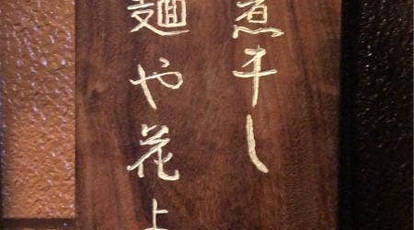 煮干し
麺や花